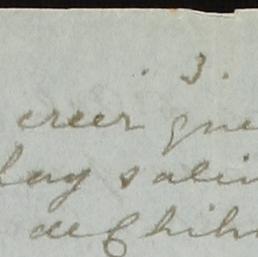 . 3.
creer que
hay salin
de Chih